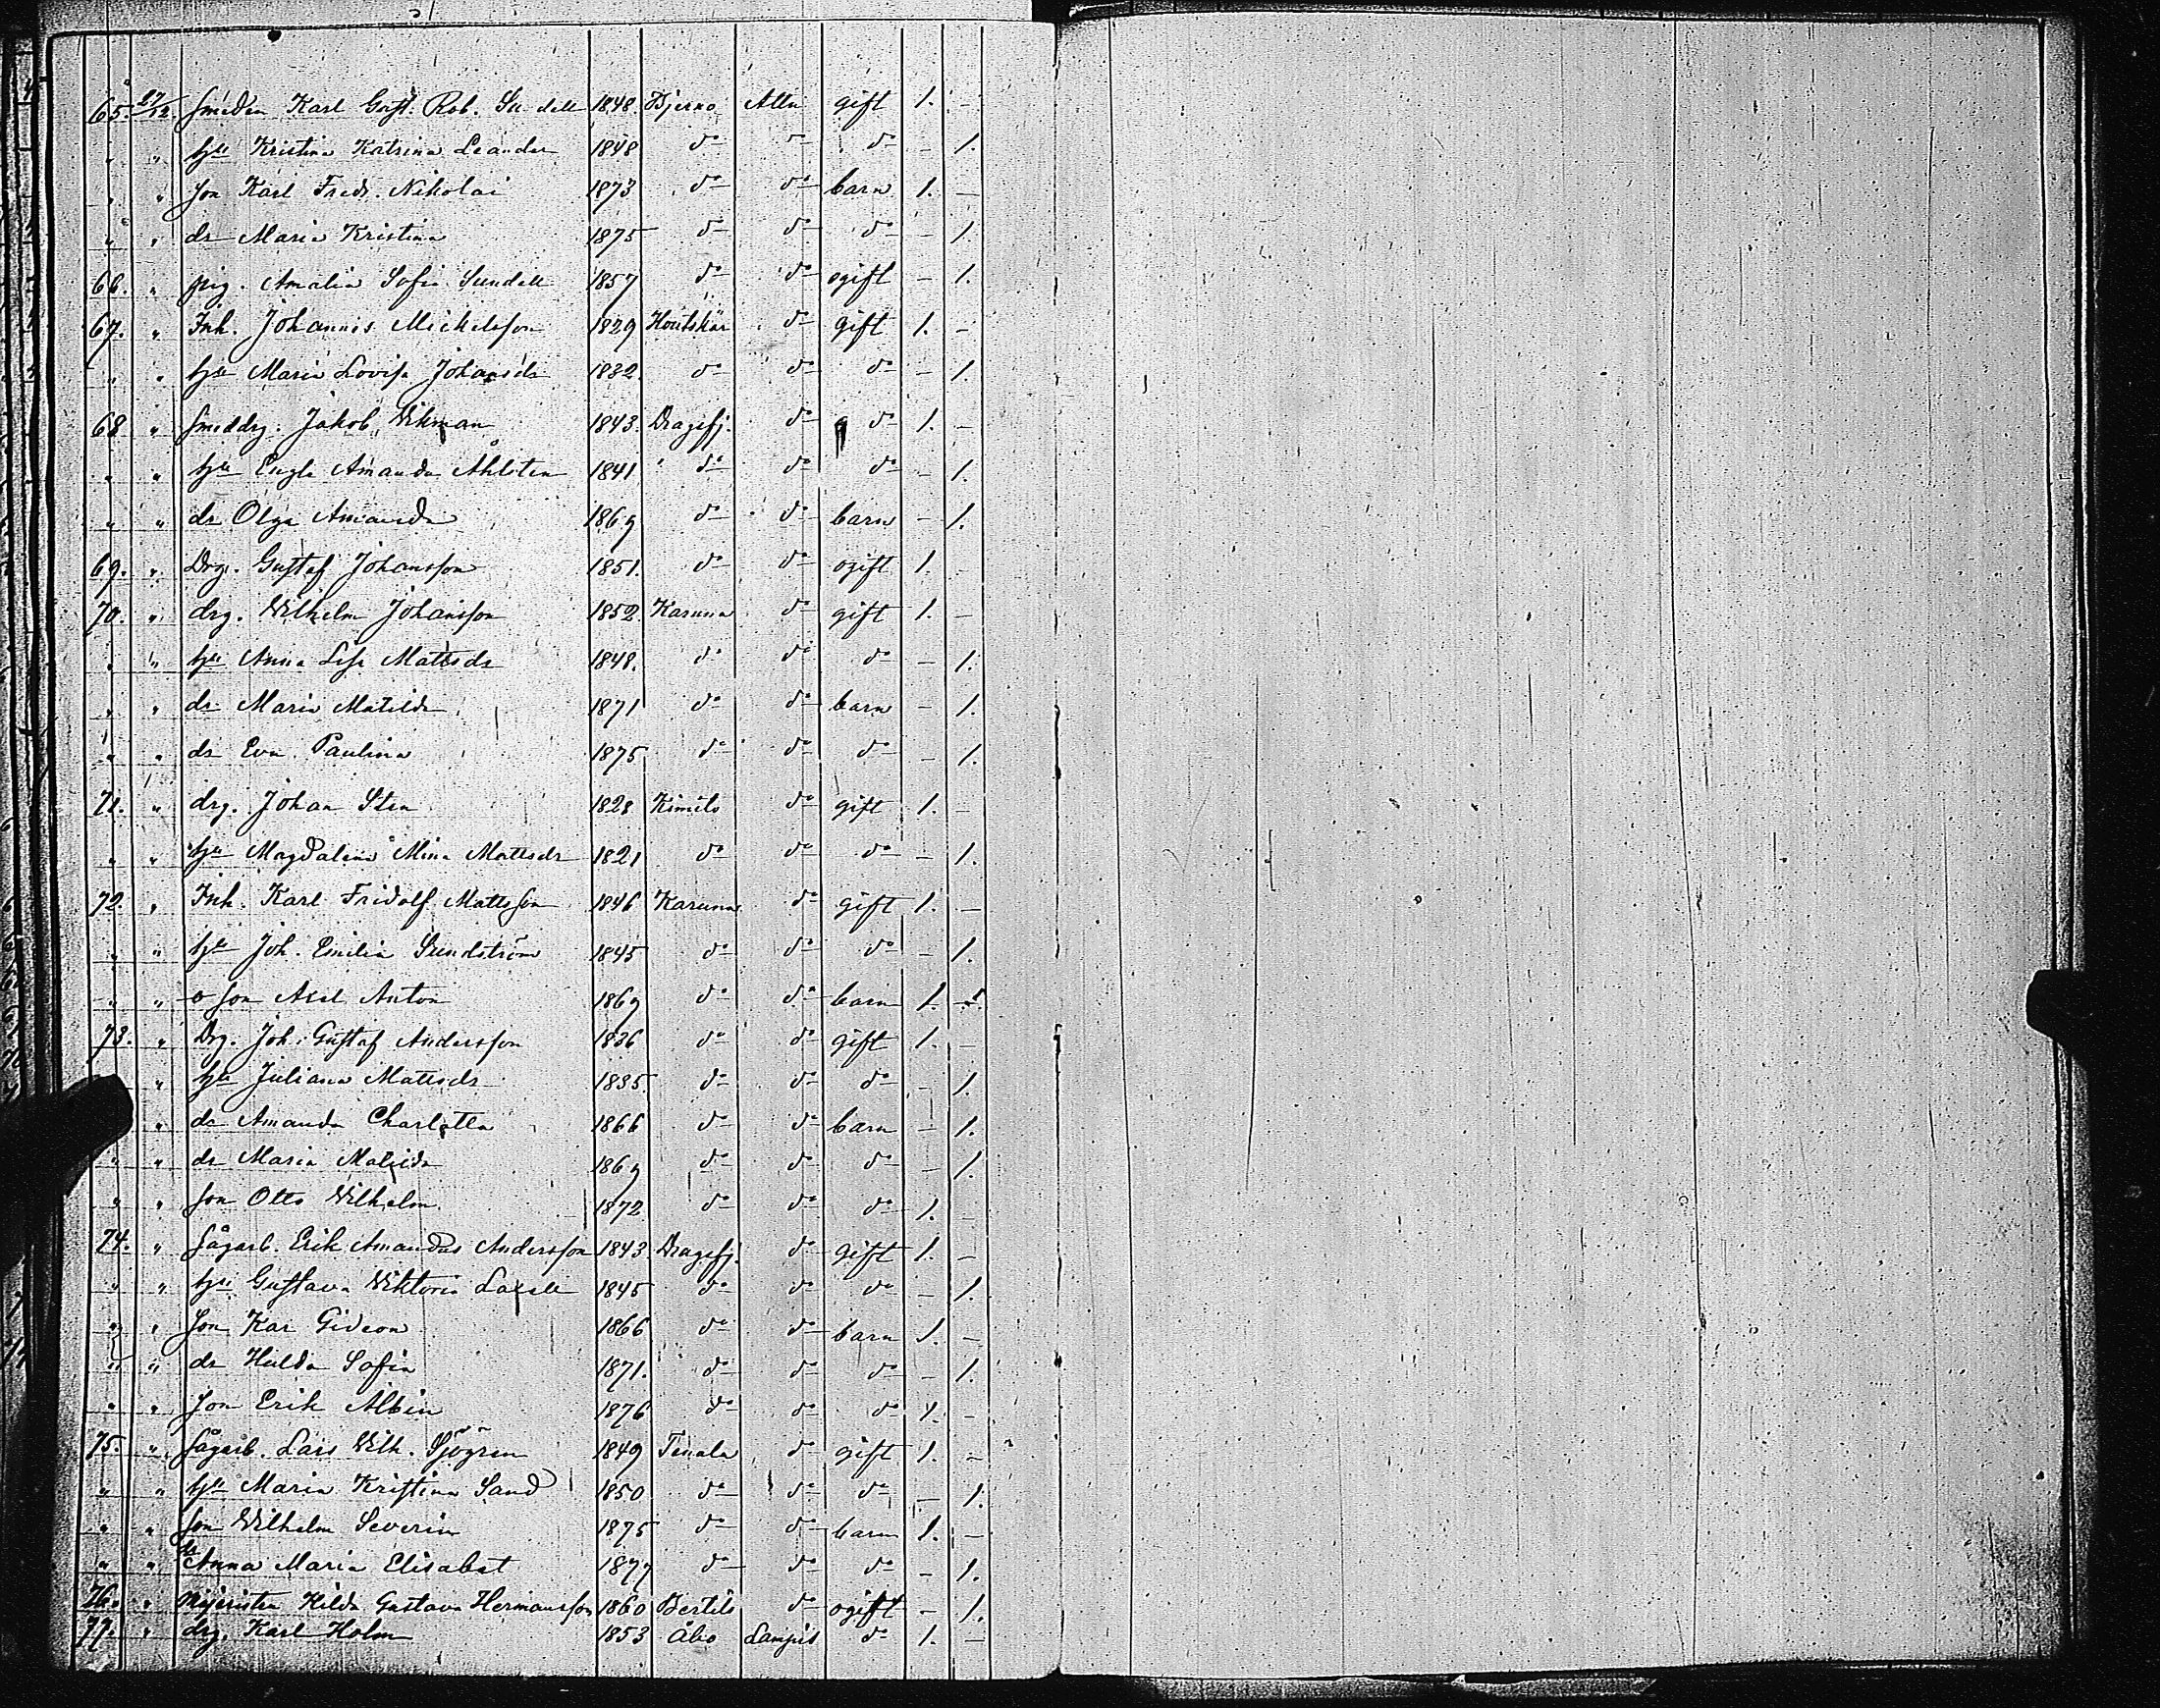 65. 27/12. Smeden Karl Gust. Rob. Sundell 1848. Bjerno Attu gift 1. –
" " hu Kristina Katrina Leander 1848 do do do – 1.
" " Son Karl Fredr. Nikolai 1873 do do barn 1. –
" " dr Maria Kristina 1875 do do do – 1.
66. " pig. Amalia Sofia Sundell 1857 do do ogift – 1.
67. " Inh. Johannis Mickelsson 1829 Houtskär do gift 1. –
" " hu Maria Lovisa Johansdr 1832. do do do – 1.
68 " Smeddrg. Jakob Wikman 1843. Dragsfj. do do 1. –
" " hu Engla Amanda Åhlsten 1841 do do do – 1.
" " dr Olga Amanda 1869 do do barn – 1.
69. " Drg. Gustaf Johansson 1851. do do ogift 1. –
70. " drg. Wilhelm Johansson 1852. Karuna do gift 1. –
" " hu Anna Lisa Mattsdr 1848. do do do – 1.
" " dr Maria Matilda 1871 do do barn – 1.
" " dr Eva Paulina 1875 do do do – 1.
71. " drg. Johan Sten 1828 Kimito do gift 1. –
" " hu Magdalena Mina Mattsdr 1821 do do do – 1.
72 " Inh. Karl Fridolf Mattsson 1846 Karuna do gift 1. –
" " hu Joh. Emilia Sundström 1845 do do do – 1.
" " o son Axel Anton 1869 do do barn 1. –
73. " Drg. Joh. Gustaf Andersson 1836 do do gift 1. –
" hu Juliana Mattsdr 1835. do do do – 1.
" dr Amanda Charlotta 1866 do do barn – 1.
" " dr Maria Matilda 1869 do do do – 1.
" " Son Otto Wilhelm 1872. do do do 1. –
74. " Sågarb. Erik Amandus Andersson 1843. Dragsfj. do gift 1. –
" " hu Gustava Wiktoria 1845 do do do – 1.
" " Son Kar Gideon 1866 do do barn 1. –
" " dr Hulda Sofia 1871. do do do – 1.
" " Son Erik Albin 1876 do do do 1. –
75. " Sågarb. Lars Wilh. Sjögren 1849 Tenala do gift 1. –
" " hu Maria Kristina Sand 1850 do do do – 1.
" " Son Wilhelm Severin 1875 do do barn 1. –
" " dr Anna Maria Elisabet 1877 do do do – 1.
76. " Hilda Gustava Hermansson 1860 Bertils do ogift – 1.
77. " drg. Karl Holm 1853 Åbo do 1. –